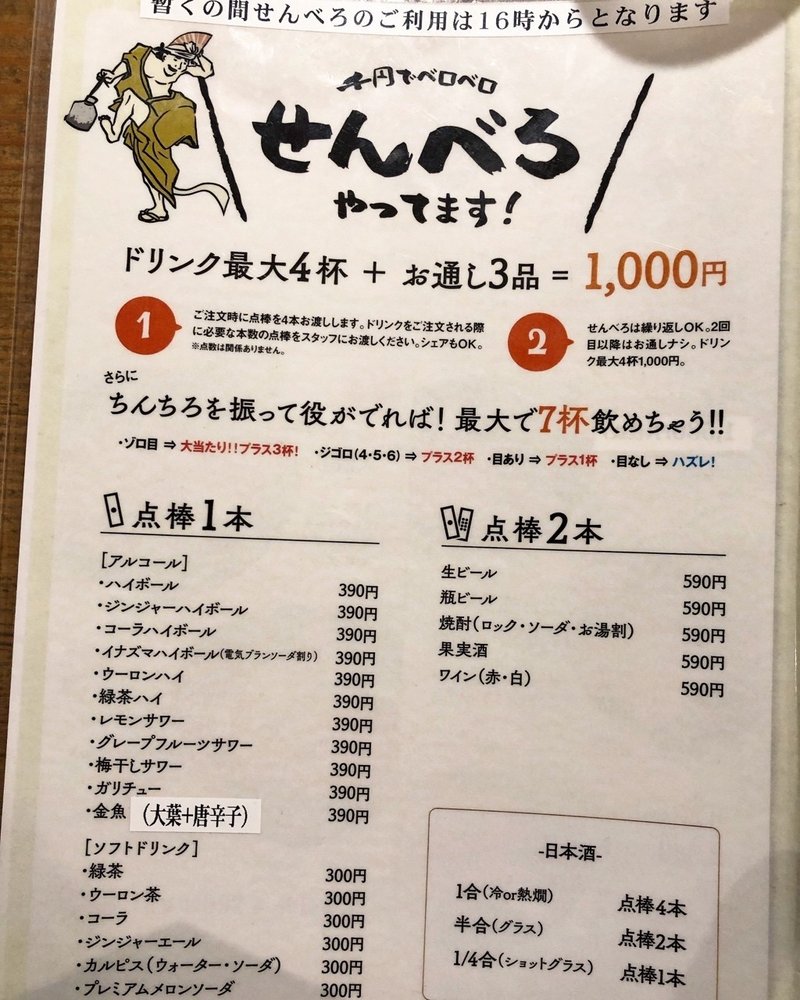 暫くの間せんべろのご利用は16時からとなります
千円でベロベロ
せんべろ
やってます!
ドリンク最大4杯 + お通し3品 = 1,000円
1
ご注文時に点棒を4本お渡しします。ドリンクをご注文される際
に必要な本数の点棒をスタッフにお渡しください。シェアもOK。
※点数は関係ありません。
2
せんべろは繰り返しOK。2回
目以降はお通しナシ。ドリン
ク最大4杯1,000円。
さらに
ちんちろを振って役がでれば! 最大で7杯飲めちゃう!!
・ゾロ目 ⇒ 大当たり!!プラス3杯! ・ジゴロ(4・5・6) ⇒ プラス2杯 ・目あり ⇒ プラス1杯 ・目なし ⇒ ハズレ!
点棒1本
[アルコール]
・ハイボール 390円
・ジンジャーハイボール 390円
・コーラハイボール 390円
・イナズマハイボール(電気ブランソーダ割り) 390円
・ウーロンハイ 390円
・緑茶ハイ 390円
・レモンサワー 390円
・グレープフルーツサワー 390円
・梅干しサワー 390円
・ガリチュー 390円
・金魚 (大葉+唐辛子) 390円
[ソフトドリンク]
・緑茶 300円
・ウーロン茶 300円
・コーラ 300円
・ジンジャーエール 300円
・カルピス(ウォーター・ソーダ) 300円
・プレミアムメロンソーダ 300円
点棒2本
生ビール 590円
瓶ビール 590円
焼酎(ロック・ソーダ・お湯割) 590円
果実酒 590円
ワイン(赤・白) 590円
-日本酒-
1合(冷or熱燗) 点棒4本
半合(グラス) 点棒2本
1/4合(ショットグラス) 点棒1本